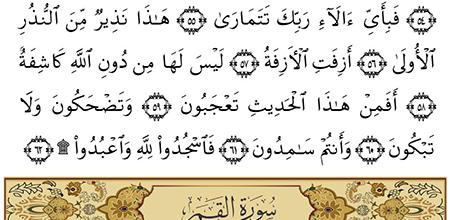 ﴿٥٤﴾ فَبِأَيِّ ءَالَآءِ رَبِّكَ تَتَمَارَىٰ ﴿٥٥﴾ هَـٰذَا نَذِيرٌ مِّنَ ٱلنُّذُرِ
ٱلْأُولَىٰٓ ﴿٥٦﴾ أَزِفَتِ ٱلْأَزِفَةُ ﴿٥٧﴾ لَيْسَ لَهَا مِن دُونِ ٱللَّهِ كَاشِفَةٌ
﴿٥٨﴾ أَفَمِنْ هَـٰذَا ٱلْحَدِيثِ تَعْجَبُونَ ﴿٥٩﴾ وَتَضْحَكُونَ وَلَا
تَبْكُونَ ﴿٦٠﴾ وَأَنتُمْ سَـٰمِدُونَ ﴿٦١﴾ فَٱسْجُدُوا۟ لِلَّهِ وَٱعْبُدُوا۟ ۩ ﴿٦٢﴾
سُورَةُ القَمَر